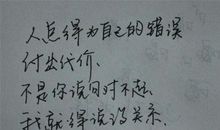 人总得为自己的错误
付出代价、
不是你说句对不起、
我就得说没关系、